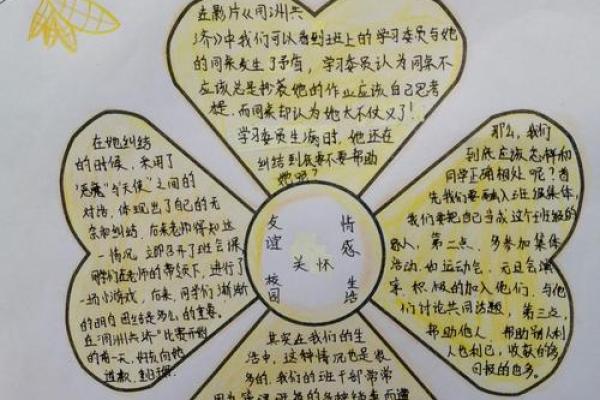 在影片《同洲共
济》中我们可以看到班上的学习委员与她
的同桌发生了矛盾，学习委员认为同桌不
应该总是抄袭她的作业应该自己思考
而同桌却认为她太不仗义了！
学习委员生病时，她还在
纠结到底要不要帮助
她呢？
在她纠结
的时候，采用了
"恶魔"与"天使"之间的
对话，体现出了自己的无
奈和纠结，后来老师得知这
一情况，立即召开了班会课
同学们在老师的带领下，进行了
一场小游戏，后来，同学们渐渐
的明白团结是多么的重要，
在"同洲共济"比赛开始
的前一天，好友向她
道歉，
友谊
情感
关怀
校园
生活
那么，我们
到底应该怎样和
同学正确相处呢？首
先我们要融入班级集体，
我们要把自己当成这个班级的
第二点，多参加集体
活动，如运动会，元旦会演
等，积极的加入他们，与他
们讨论共同话题，第三点，
帮助他人，帮助别人利
人也利己，收获的
也多。
其实在我们的生
活中，这种情况也是很
多的，我们的班干部常常
因为管理班级的各种结事而遭